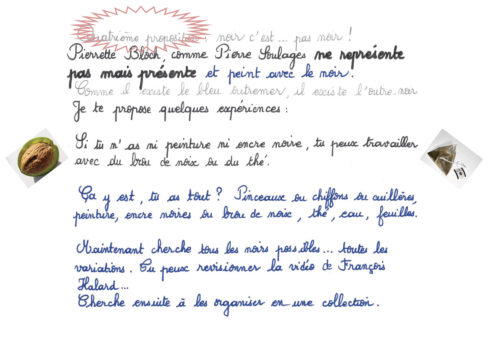 Quatrième proposition : noir c'est ... pas noir !
Pierrette Bloch, comme Pierre Soulages ne représente
pas mais présente et peint avec le noir.
Comme il existe le bleu outremer, il existe l'outre-noir
Je te propose quelques expériences :
Si tu n'as ni peinture ni encre noire, tu peux travailler
avec du brou de noix ou du thé.
Ça y est, tu as tout ? Pinceaux ou chiffons ou cuillères,
peinture, encre noires ou brou de noix, thé, eau, feuilles.
Maintenant cherche tous les noirs possibles... toutes les
variations. Tu peux revisionner la vidéo de François
Halard...
Cherche ensuite à les organiser en une collection.